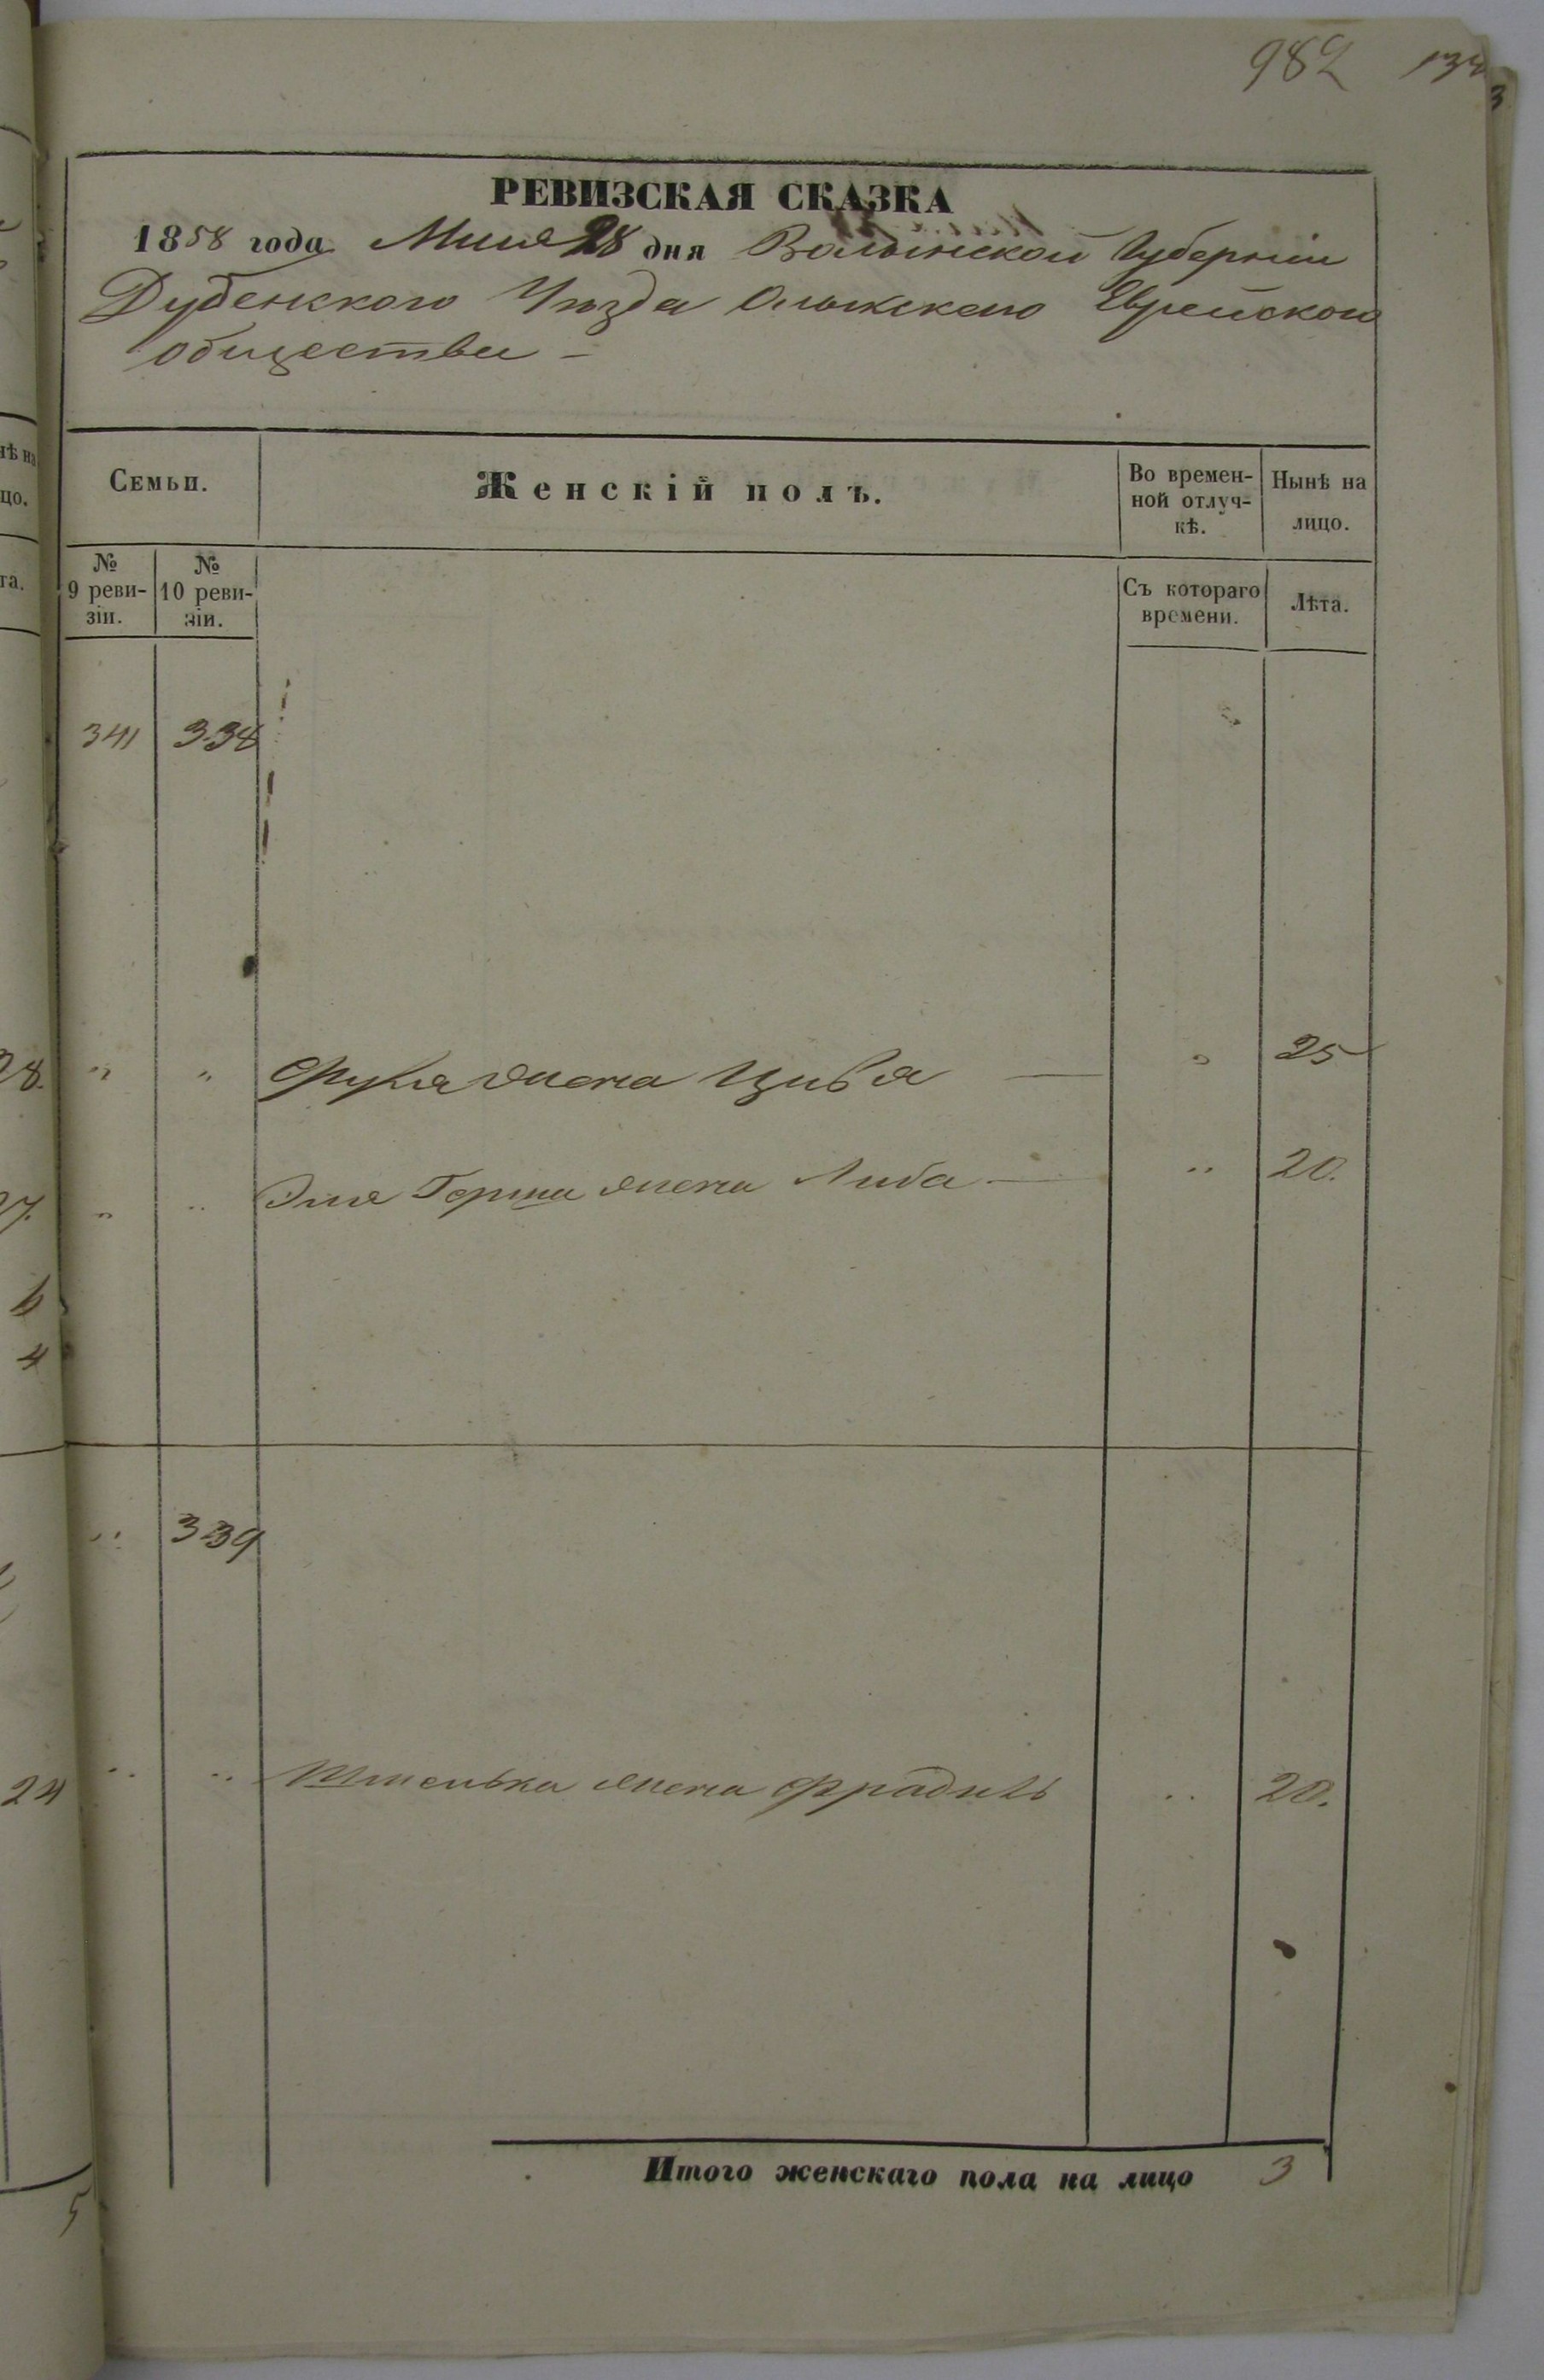 982
РЕВИЗСКАЯ СКАЗКА
1858 года Мая 28 дня Волынской Губерніи
Дубенского Уѣзда Олыкского Еврейского
общества –
Семьи.
Женскій полъ.
Во времен-
ной отлуч-
кѣ.
Нынѣ на
лицо.
№
9 реви-
зіи.
№
10 реви-
зіи.
Съ котораго
времени.
Лѣта.
341 338
" " жена Цивя — " 25
" " Герша жена Либа — " 20.
" 339
" " жена Фрадиль " 20.
Итого женскаго пола на лицо 3
28.
27.
6
4
24
5